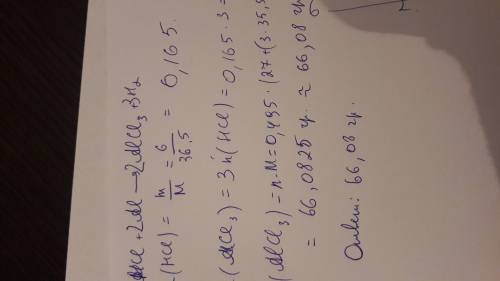 HCl + 2Al → 2AlCl₃ + 3H₂
(HCl) = m/M = 6/36,5 = 0,165.
(AlCl₃) = 3n(HCl) = 0,165·3 =
(AlCl₃) = n·M = 0,495·(27+(3·35,5
= 66,0825 гр. ≈ 66,08 гр
Ответ: 66,08 гр.